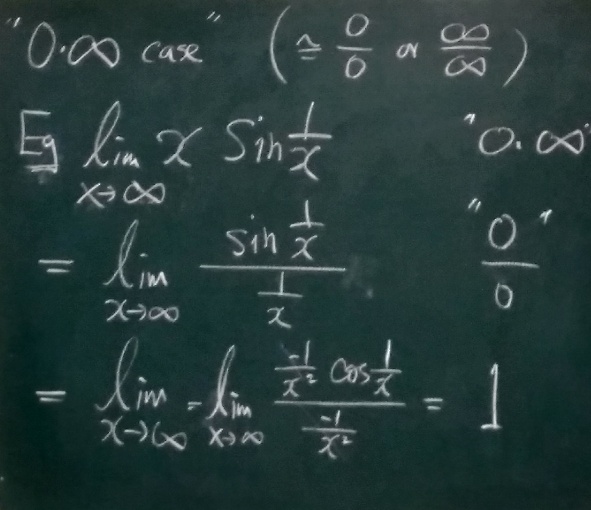 "0·∞ case" (≅ 0/0 or ∞/∞)
Eg lim x→∞ x Sin 1/x "0.∞"
= lim x→∞ sin 1/x / 1/x "0/0"
= lim x→∞ = lim x→∞ -1/x² cos 1/x / -1/x² = 1